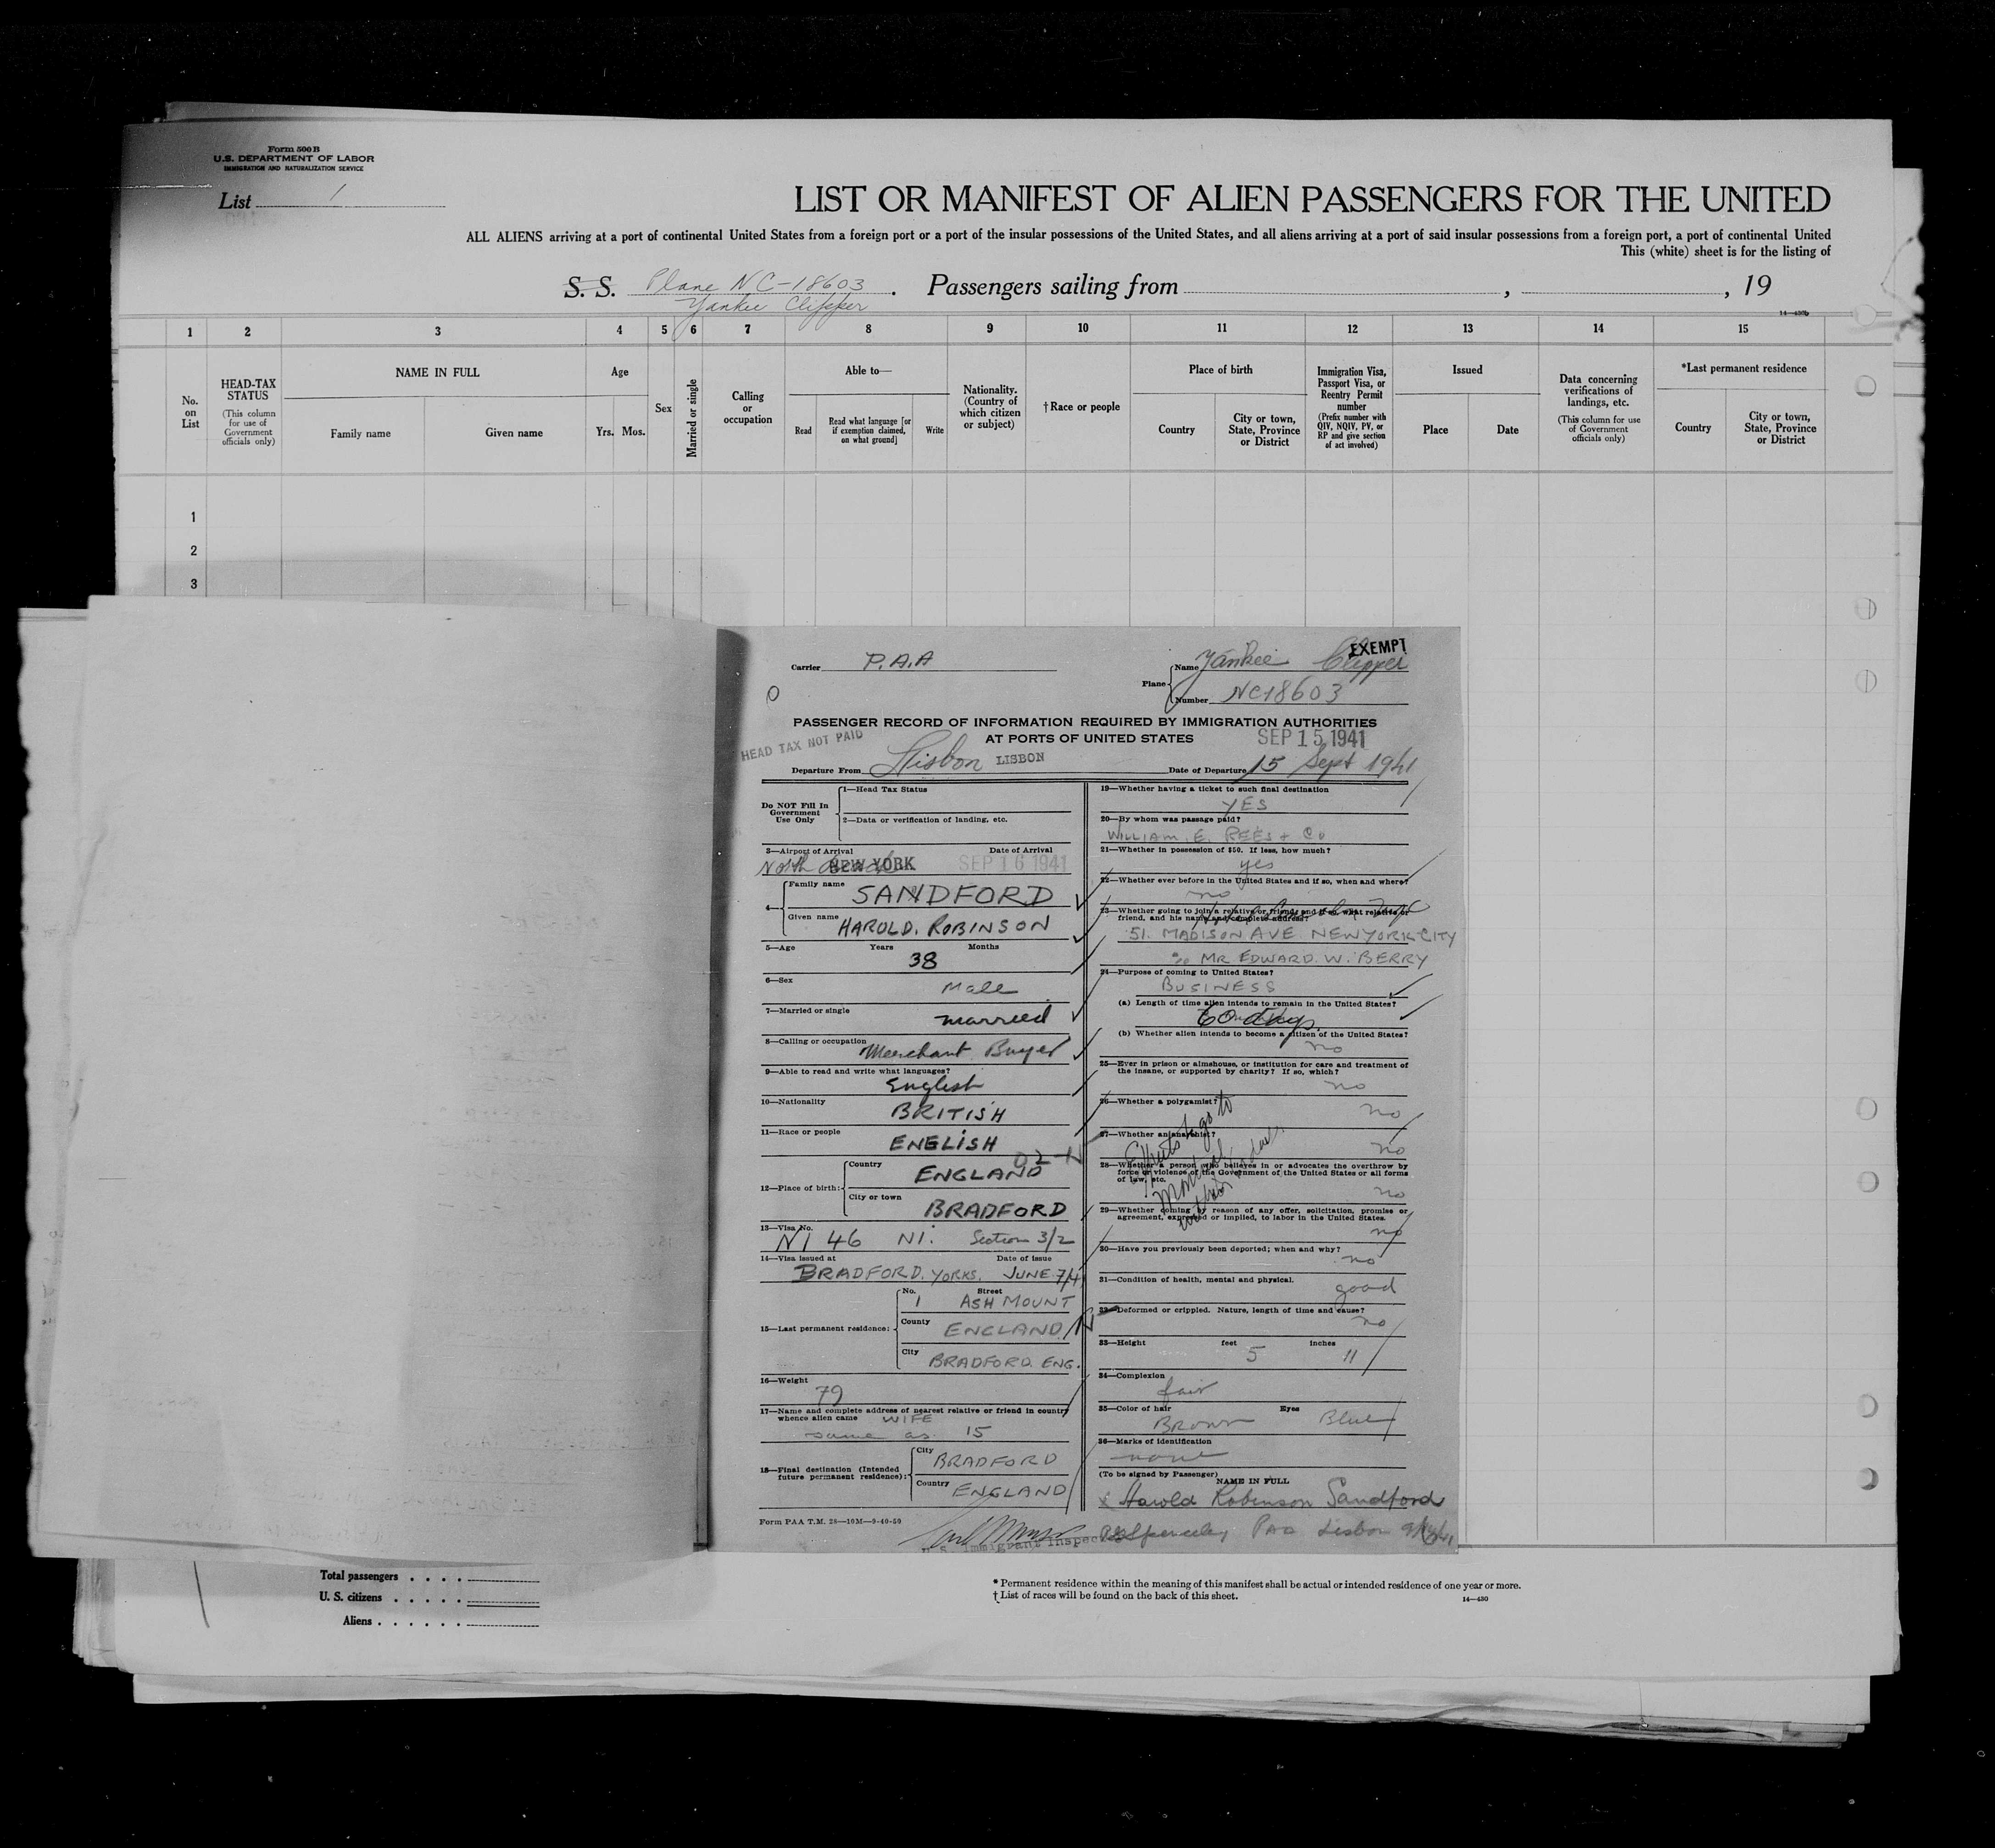 Form 500 B
U.S. DEPARTMENT OF LABOR
IMMIGRATION AND NATURALIZATION SERVICE
List 1
LIST OR MANIFEST OF ALIEN PASSENGERS FOR THE UNITED
ALL ALIENS arriving at a port of continental United States from a foreign port or a port of the insular possessions of the United States, and all aliens arriving at a port of said insular possessions from a foreign port, a port of continental United
This (white) sheet is for the listing of
S. S. Plane NC-18603 . Passengers sailing from , , 19
Yankee Clipper
14—430b
1 2 3 4 5 6 7 8 9 10 11 12 13 14 15
No. on List
HEAD-TAX STATUS
(This column for use of Government officials only)
NAME IN FULL
Family name
Given name
Age
Yrs. Mos.
Sex
Married or single
Calling or occupation
Able to—
Read
Read what language [or if exemption claimed, on what ground]
Write
Nationality. (Country of which citizen or subject)
†Race or people
Place of birth
Country
City or town, State, Province or District
Immigration Visa, Passport Visa, or Reentry Permit number
(Prefix number with QIV, NQIV, PV, or RP and give section of act involved)
Issued
Place
Date
Data concerning verifications of landings, etc.
(This column for use of Government officials only)
*Last permanent residence
Country
City or town, State, Province or District
1
2
3
EXEMPT
Carrier P.A.A
Plane Name Yankee Clipper
Number NC18603
PASSENGER RECORD OF INFORMATION REQUIRED BY IMMIGRATION AUTHORITIES
AT PORTS OF UNITED STATES
HEAD TAX NOT PAID
SEP 15 1941
Departure From Lisbon LISBON Date of Departure 15 Sept 1941
Do NOT Fill In Government Use Only
1—Head Tax Status
2—Data or verification of landing, etc.
3—Airport of Arrival Date of Arrival
North Beach NEW YORK SEP 16 1941
4— Family name SANDFORD
Given name HAROLD. ROBINSON
5—Age Years Months
38
6—Sex Male
7—Married or single married
8—Calling or occupation Merchant Buyer
9—Able to read and write what languages?
English
10—Nationality BRITISH
11—Race or people ENGLISH
12—Place of birth: Country ENGLAND
City or town BRADFORD
13—Visa No.
NI 46 NI. Section 3/2
14—Visa issued at Date of issue
BRADFORD. YORKS. JUNE 7/41
15—Last permanent residence: No. Street
1 ASH MOUNT
County ENGLAND
City BRADFORD. ENG.
16—Weight
79
17—Name and complete address of nearest relative or friend in country
whence alien came WIFE
same as 15
18—Final destination (Intended future permanent residence): City BRADFORD
Country ENGLAND
Form PAA T.M. 28—10M—9-40-50
U.S. Immigrant Inspec
19—Whether having a ticket to such final destination
YES
20—By whom was passage paid?
WILLIAM. E. REES + Co
21—Whether in possession of $50. If less, how much?
yes
22—Whether ever before in the United States and if so, when and where?
no
23—Whether going to join a relative or friend; and if so, what relative or
friend, and his name and complete address?
51. MADISON AVE NEW YORK CITY
c/o MR EDWARD. W. BERRY
24—Purpose of coming to United States?
BUSINESS
(a) Length of time alien intends to remain in the United States?
60 days
(b) Whether alien intends to become a citizen of the United States?
no
25—Ever in prison or almshouse, or institution for care and treatment of
the insane, or supported by charity? If so, which?
no
26—Whether a polygamist?
no
27—Whether an anarchist?
no
28—Whether a person who believes in or advocates the overthrow by
force or violence of the Government of the United States or all forms
of law, etc.
no
29—Whether coming by reason of any offer, solicitation, promise or
agreement, expressed or implied, to labor in the United States.
no
30—Have you previously been deported; when and why?
no
31—Condition of health, mental and physical.
good
32—Deformed or crippled. Nature, length of time and cause?
no
33—Height feet inches
5 11
34—Complexion
fair
35—Color of hair Eyes
Brown Blue
36—Marks of identification
none
(To be signed by Passenger)
NAME IN FULL
x Harold Robinson Sandford
PAA Lisbon
Total passengers . . . .
U. S. citizens . . . . .
Aliens . . . . . .
* Permanent residence within the meaning of this manifest shall be actual or intended residence of one year or more.
† List of races will be found on the back of this sheet.
14—430